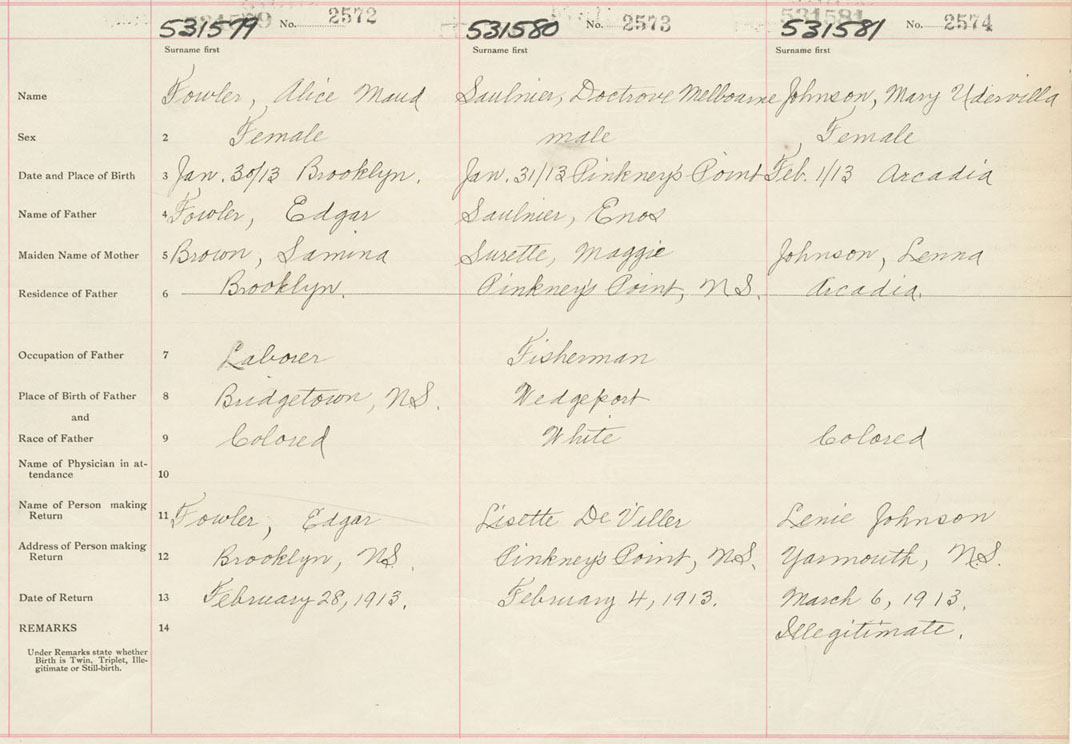 531579 No. 2572 531580 No. 2573 531581 No. 2574
Surname first Surname first Surname first
Name Fowler, Alice Maud Saulnier, Doctrove Melbourne Johnson, Mary Udervilla
Sex 2 Female male Female
Date and Place of Birth 3 Jan. 30/13 Brooklyn. Jan. 31/13 Pinkney's Point Feb. 1/13 Arcadia
Name of Father 4 Fowler, Edgar Saulnier, Enos
Maiden Name of Mother 5 Brown, Samina Surette, Maggie Johnson, Lenna
Residence of Father 6 Brooklyn. Pinkney's Point, N.S. Arcadia.
Occupation of Father 7 Laborer Fisherman
Place of Birth of Father 8 Bridgetown, N.S. Wedgeport
and
Race of Father 9 Colored White Colored
Name of Physician in at-
tendance 10
Name of Person making
Return 11 Fowler, Edgar Lisette De Viller Lenie Johnson
Address of Person making
Return 12 Brooklyn, N.S. Pinkney's Point, N.S. Yarmouth, N.S.
Date of Return 13 February 28, 1913. February 4, 1913. March 6, 1913.
REMARKS 14 Illegitimate.
Under Remarks state whether
Birth is Twin, Triplet, Ille-
gitimate or Still-birth.